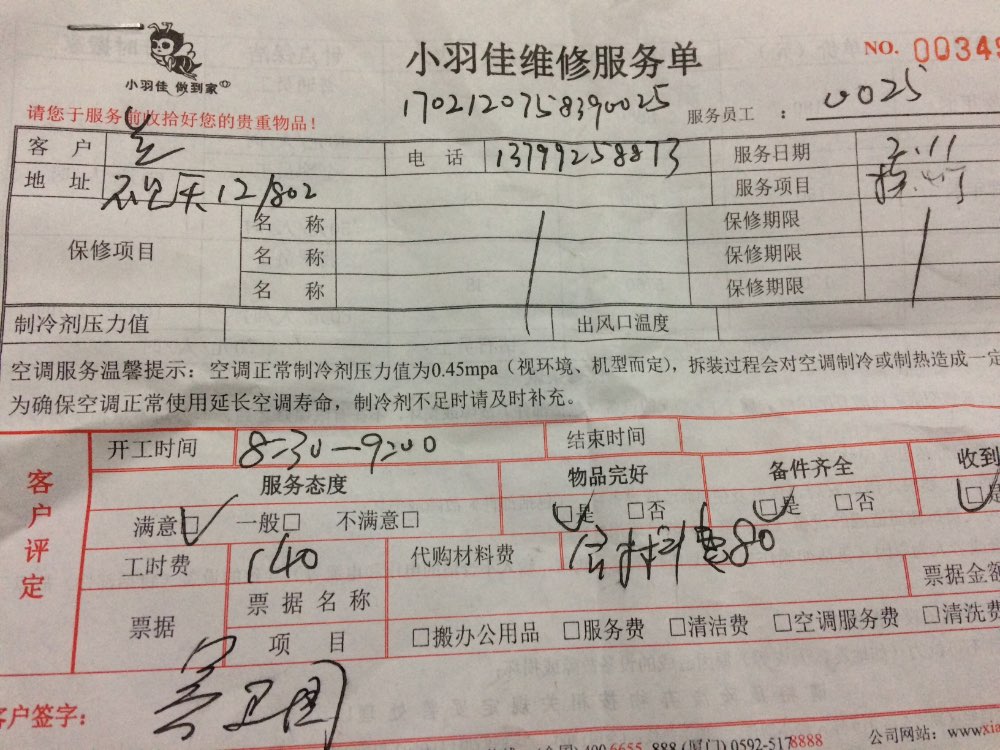 小羽佳 做到家
小羽佳维修服务单
NO. 00349
1702120758390025
服务员工 : 0025
请您于服务前收拾好您的贵重物品!
客 户 电 话 13799258873 服务日期 2.11
地 址 天12/802 服务项目
保修项目 名 称 保修期限
名 称 保修期限
名 称 保修期限
制冷剂压力值 出风口温度
空调服务温馨提示：空调正常制冷剂压力值为0.45mpa（视环境、机型而定），拆装过程会对空调制冷或制热造成一定
为确保空调正常使用延长空调寿命，制冷剂不足时请及时补充。
客户评定
开工时间 8:30—9:00 结束时间
服务态度 物品完好 备件齐全 收到
满意□ 一般□ 不满意□ □是 □否 □是 □否 □是
工时费 140 代购材料费 材料费80
票据 票据名称 票据金额
项 目 □搬办公用品 □服务费 □清洁费 □空调服务费 □清洗费
客户签字：
400 6655 888 (厦门) 0592-5178888 公司网站：www.xia